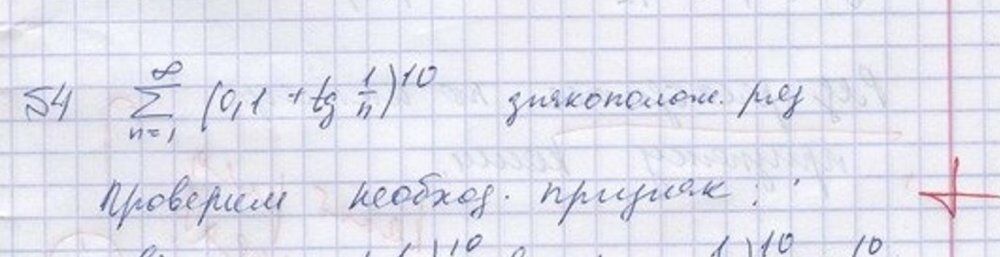 54 ∑_{n=1}^{∞} (0,1 + tg 1/n)^{10} знакополож. ряд
Проверим необход. признак :